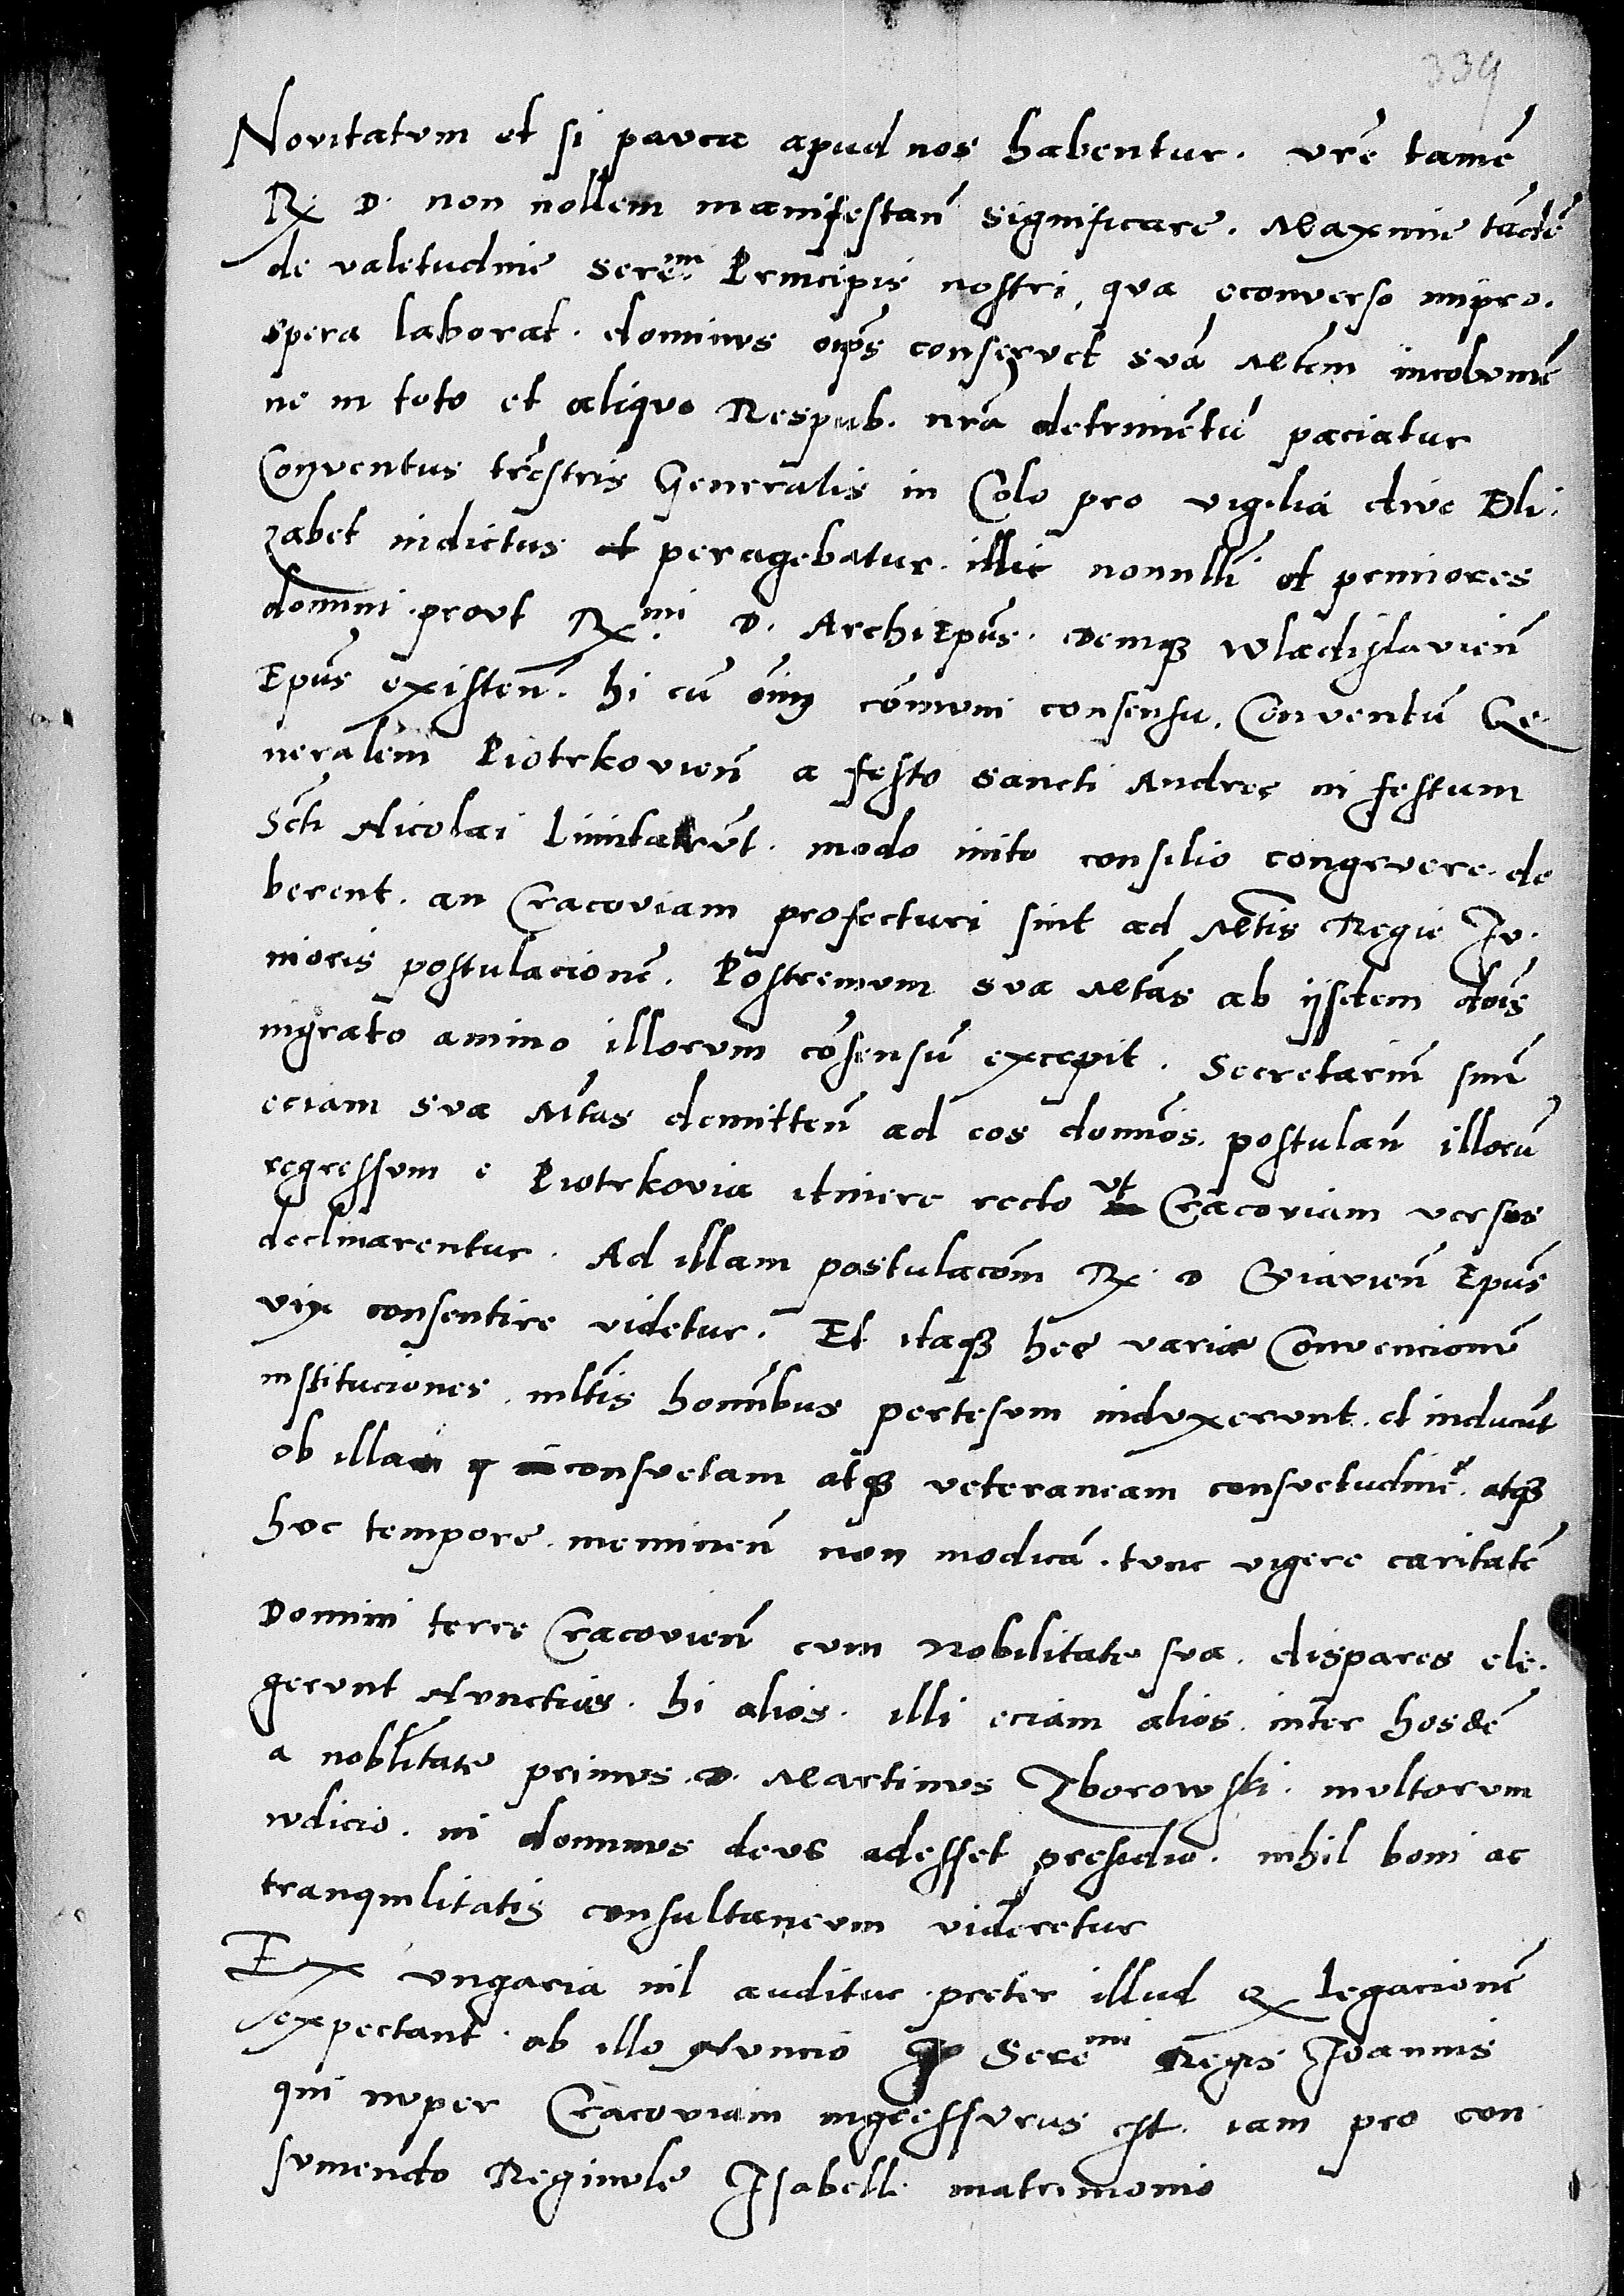 339
Novitatum et si pauca apud nos habentur. vrẽ tamẽ
Rx D. non nollem manifestañ significare. Maxime tãdẽ
de valetudine Sereᵐⁱ Principis nostri, qua econverso impro.
spera laborat. dominus oĩps conservet suã Mtem incolumẽ
ne in toto et aliquo Respub. nrã detrimẽtũ paciatur
Conventus trẽstris Generalis in Colo pro vigilia dive Eli.
zabet indictus et peragebatur. illic nonnulli et primores
domini. prout Rxᵐⁱ D. ArchiEpũs. Demqȝ Wladislavieñ
Epũs existeñ. hi cũ oĩm cõmuni consensu. Conventũ Ge
neralem Piotrkovieñ a festo Sancti Andree in festum
Scti Nicolai limitarũt. modo inito consilio congruere. de
berent. an Cracoviam profecturi sint ad Mtis Regie Iu.
nioris postulacionẽ. Postremum sua Mtas ab ijsdem dõis
ingrato animo illorum cõsensũ excepit. Secretariũ suũ
eciam sua Mtas demitteñ ad eos domĩos. postulañ illorũ
regressum e Piotrkovia itinere recto ut Cracoviam versus
declinarentur. Ad illam postulacõm Rx D Cuiavieñ Epũs
vix consentire videtur. Et itaqȝ hee varie Convencionũ
instituciones. mltis homĩbus pertesum induxerunt. et inducũt
ob illam consuetam atqȝ veteraneam consuetudinẽ. atqȝ
hoc tempore. memineñ non modicã. tunc vigere caritatẽ
Domini terre Cracovieñ cum Nobilitate sua. dispares ele.
gerunt Nunctios. hi alios. illi eciam alios. inter hosdẽ
a nobilitate primus. D. Martinus Zborowski. multorum
iudicio. ni dominus deus adesset presidio. nihil boni ac
tranquilitatis consultaneum videretur
Ex Ungaria nil auditur. preter illud Qx legacionẽ
expectant. ab illo Nuncio Sereᵐⁱ Regis Ioannis
qui nuper Cracoviam ingressurus est. iam pro con
sumendo Reginule Isabelle matrimonio